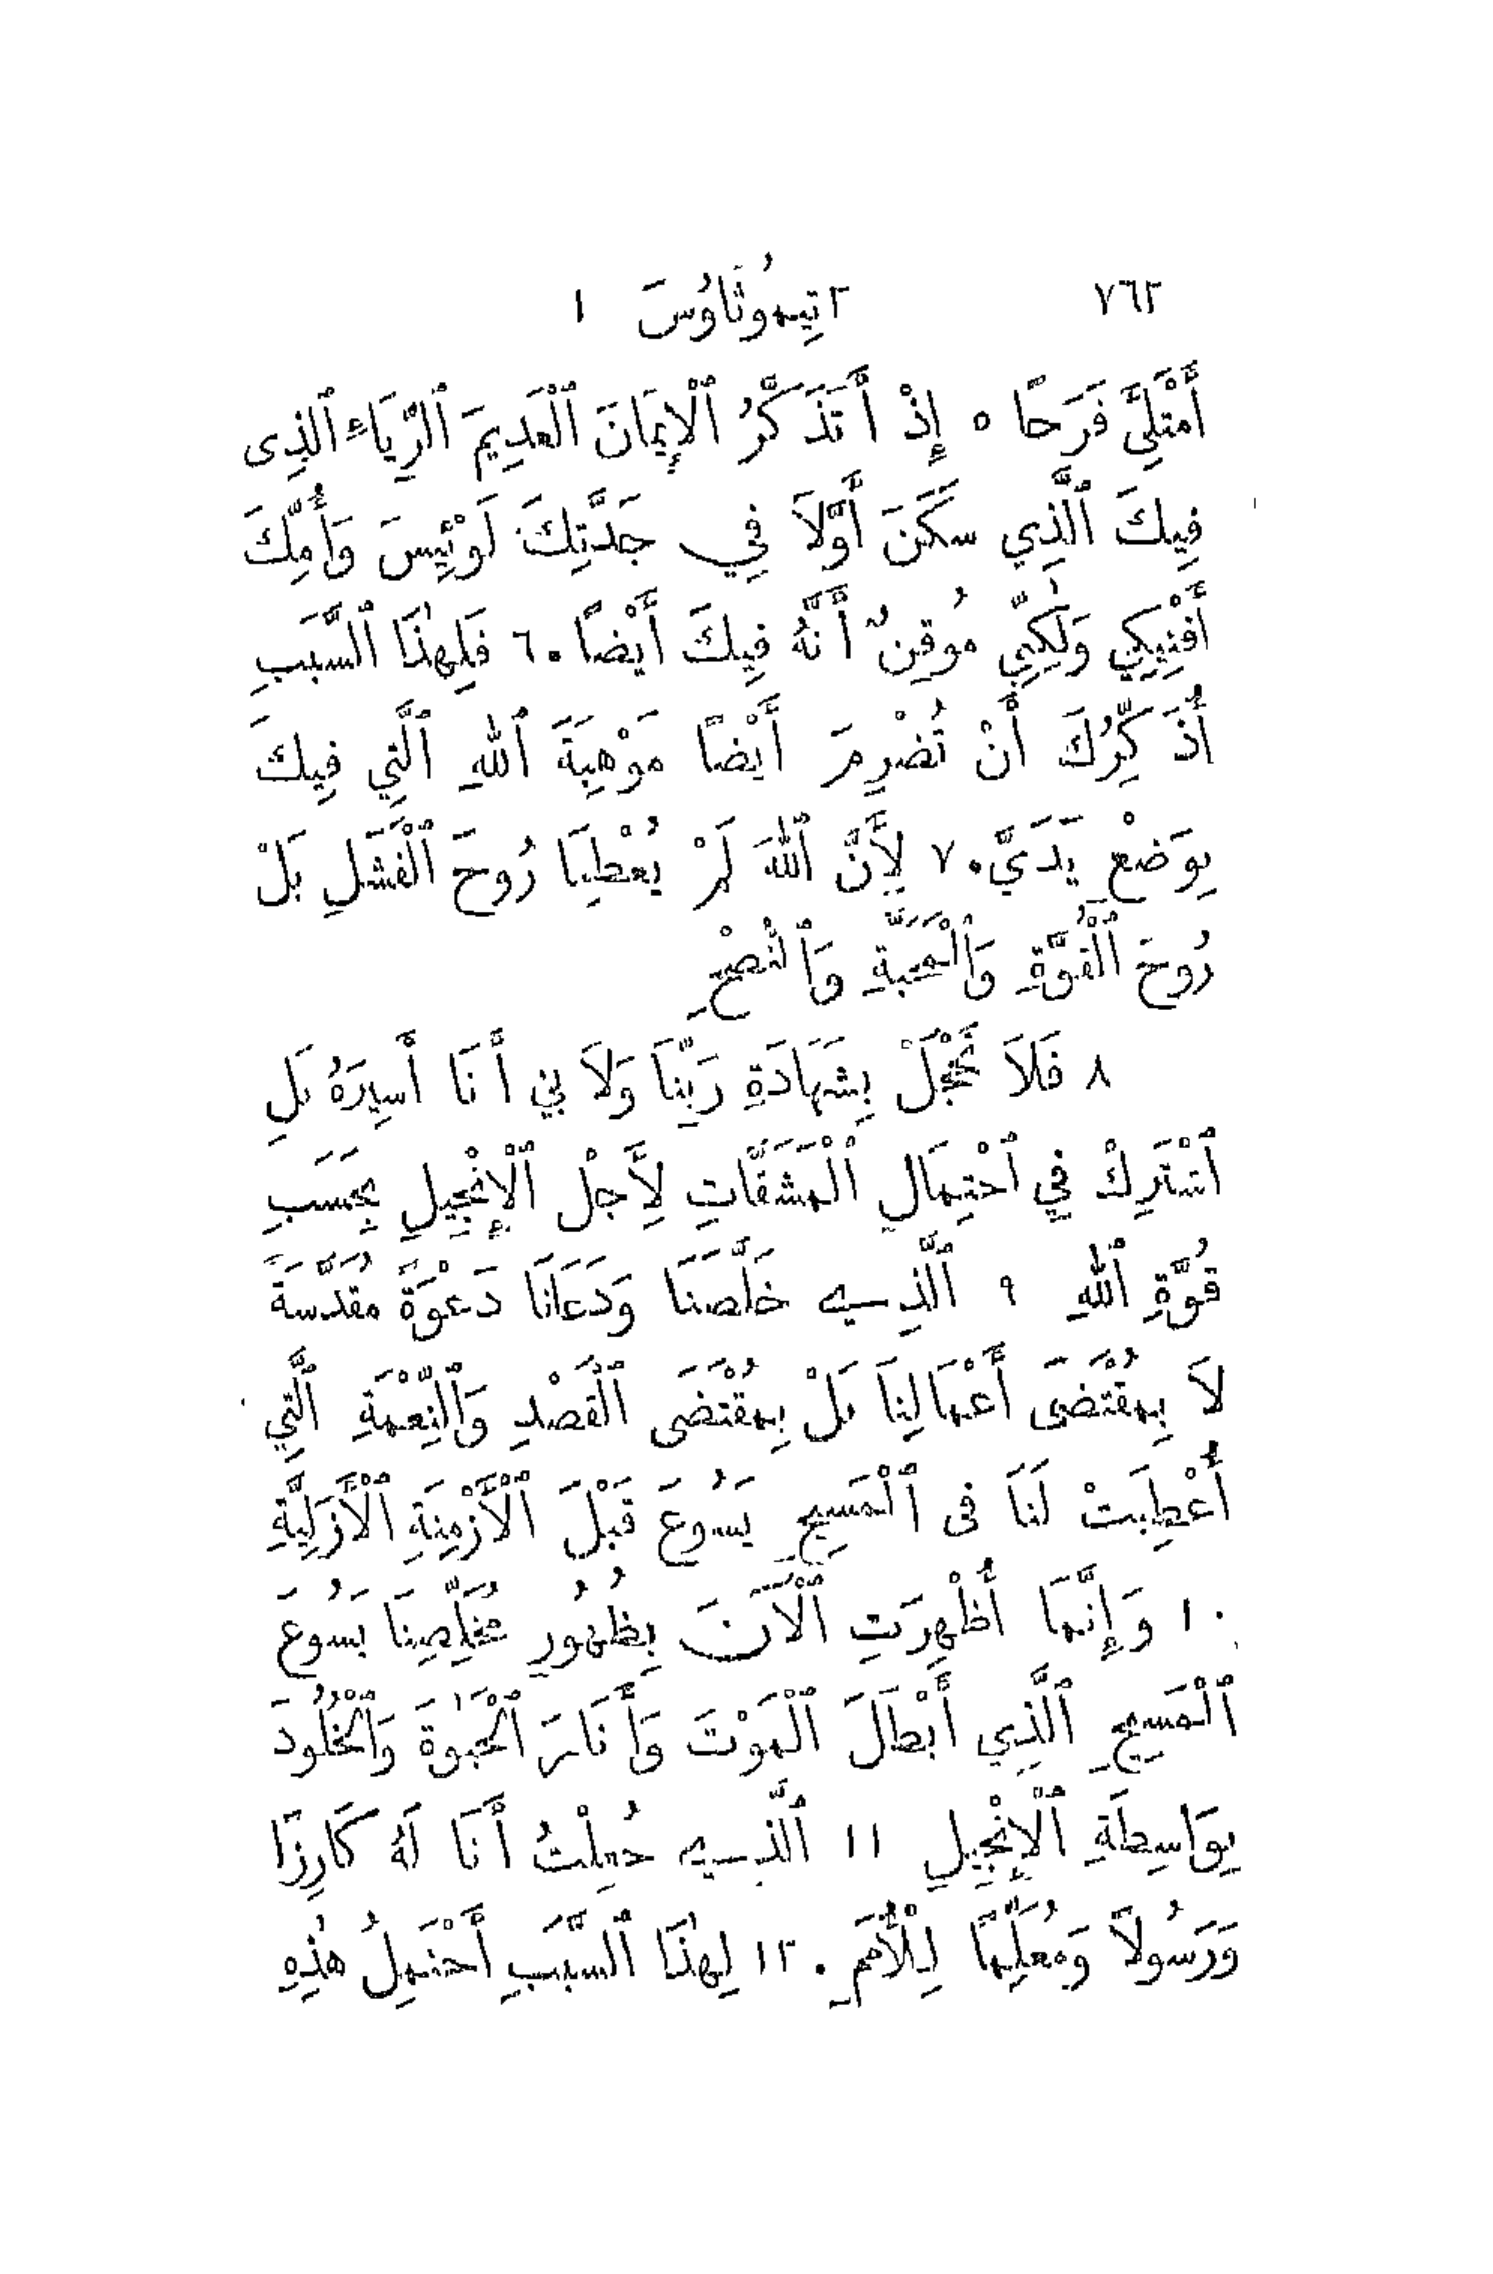 ٧٦٢ ٢ تِيمُوثَاوُسَ ١
أَمْتَلِئَ فَرَحًا ٥ إِذْ أَتَذَكَّرُ ٱلْإِيمَانَ ٱلْعَدِيمَ ٱلرِّيَاءِ ٱلَّذِي
فِيكَ ٱلَّذِي سَكَنَ أَوَّلاً فِي جَدَّتِكَ لَوْئِيسَ وَأُمِّكَ
أَفْنِيكِي وَلٰكِنِّي مُوقِنٌ أَنَّهُ فِيكَ أَيْضًا. ٦ فَلِهٰذَا ٱلسَّبَبِ
أُذَكِّرُكَ أَنْ تُضْرِمَ أَيْضًا مَوْهِبَةَ ٱللهِ ٱلَّتِي فِيكَ
بِوَضْعِ يَدَيَّ. ٧ لِأَنَّ ٱللهَ لَمْ يُعْطِنَا رُوحَ ٱلْفَشَلِ بَلْ
رُوحَ ٱلْقُوَّةِ وَٱلْمَحَبَّةِ وَٱلنُّصْحِ
٨ فَلاَ تَخْجَلْ بِشَهَادَةِ رَبِّنَا وَلاَ بِي أَنَا أَسِيرَهُ بَلِ
ٱشْتَرِكْ فِي ٱحْتِمَالِ ٱلْمَشَقَّاتِ لِأَجْلِ ٱلْإِنْجِيلِ بِحَسَبِ
قُوَّةِ ٱللهِ ٩ ٱلَّذِي خَلَّصَنَا وَدَعَانَا دَعْوَةً مُقَدَّسَةً
لاَ بِمُقْتَضَى أَعْمَالِنَا بَلْ بِمُقْتَضَى ٱلْقَصْدِ وَٱلنِّعْمَةِ ٱلَّتِي
أُعْطِيَتْ لَنَا فِي ٱلْمَسِيحِ يَسُوعَ قَبْلَ ٱلْأَزْمِنَةِ ٱلْأَزَلِيَّةِ
١٠ وَإِنَّمَا أُظْهِرَتِ ٱلْآنَ بِظُهُورِ مُخَلِّصِنَا يَسُوعَ
ٱلْمَسِيحِ ٱلَّذِي أَبْطَلَ ٱلْمَوْتَ وَأَنَارَ ٱلْحَيٰوةَ وَٱلْخُلُودَ
بِوَاسِطَةِ ٱلْإِنْجِيلِ ١١ ٱلَّذِي جُعِلْتُ أَنَا لَهُ كَارِزًا
وَرَسُولاً وَمُعَلِّمًا لِلْأُمَمِ. ١٢ لِهٰذَا ٱلسَّبَبِ أَحْتَمِلُ هٰذِهِ